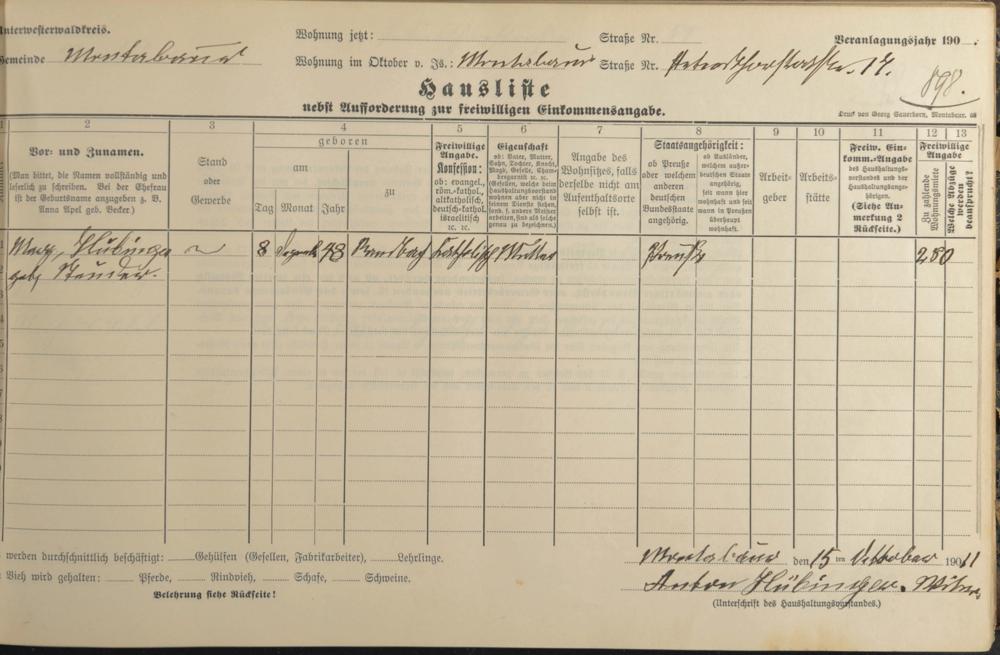 Unterwesterwaldkreis.
Wohnung jetzt: Straße Nr. Veranlagungsjahr 190 .
Gemeinde Montabaur Wohnung im Oktober v. Js.: Montabaur Straße Nr. 17.
898.
Hausliste
nebst Aufforderung zur freiwilligen Einkommensangabe.
Druck von Georg Sauerborn, Montabaur.
1 2 3 4 5 6 7 8 9 10 11 12 13
Vor- und Zunamen.
(Man bittet, die Namen vollständig und
leserlich zu schreiben. Bei der Ehefrau
ist der Geburtsname anzugeben z. B.
Anna Apel geb. Becker.)
Stand
oder
Gewerbe
geboren
am
zu
Tag Monat Jahr
Freiwillige
Angabe.
Konfession:
ob: evangel.,
röm.-kathol.,
altkatholisch,
deutsch-kathol.
israelitisch
ꝛc. ꝛc.
Eigenschaft
ob: Vater, Mutter,
Sohn, Tochter, Knecht,
Magd, Geselle, Cham-
bregarnist ꝛc. ꝛc.
(Gesellen, welche beim
Haushaltungsvorstand
wohnen aber nicht in
seinem Dienste stehen,
sond. f. andere Meister
arbeiten, sind als solche
genau zu bezeichnen.)
Angabe des
Wohnsitzes, falls
derselbe nicht am
Aufenthaltsorte
selbst ist.
Staatsangehörigkeit:
ob Preuße
oder welchem
anderen
deutschen
Bundesstaate
angehörig.
ob Ausländer,
welchem außer-
deutschen Staate
angehörig,
seit wann hier
wohnhaft und seit
wann in Preußen
überhaupt
wohnhaft.
Arbeit-
geber
Arbeits-
stätte
Freiw. Ein-
komm.-Angabe
des Haushaltungs-
vorstandes und der
Haushaltungsange-
hörigen.
(Siehe An-
merkung 2
Rückseite.)
Freiwillige
Angabe
Zu zahlende
Wohnungsmiete
Welche Abzüge
werden
beansprucht?
1 Hübinger 8 48 katholisch Mutter Preuße 280
2 geb.
3
werden durchschnittlich beschäftigt: Gehülfen (Gesellen, Fabrikarbeiter), Lehrlinge.
Vieh wird gehalten: Pferde, Rindvieh, Schafe, Schweine.
Belehrung siehe Rückseite!
Montabaur den 15 ten Oktober 1911
Anton Hübinger.
(Unterschrift des Haushaltungsvorstandes.)